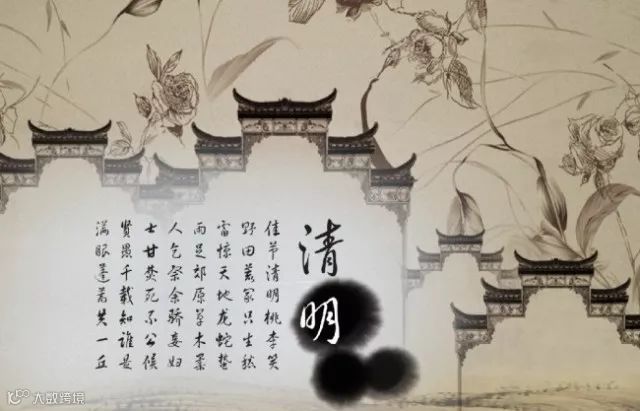 清明
佳节清明桃李笑
野田荒冢只生愁
雷惊天地龙蛇蛰
雨足郊原草木柔
人乞祭余骄妾妇
士甘焚死不公侯
贤愚千载知谁是
满眼蓬蒿共一丘
大数跨境